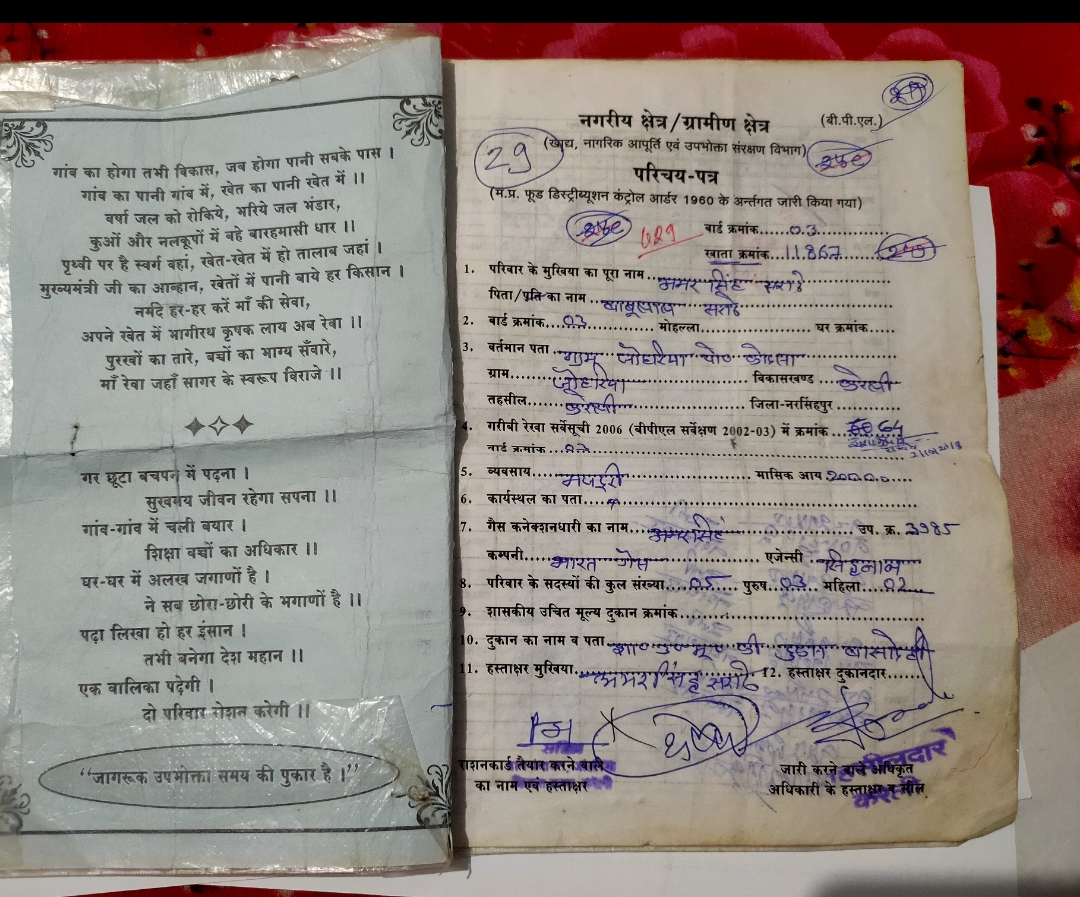 गांव का होगा तभी विकास, जब होगा पानी सबके पास ।
गांव का पानी गांव में, खेत का पानी खेत में ।।
वर्षा जल को रोकिये, भरिये जल भंडार,
कुओं और नलकूपों में वहे बारहमासी धार ।।
पृथ्वी पर है स्वर्ग वहां, खेत-खेत में हो तालाब जहां ।
मुख्यमंत्री जी का आव्हान, खेतों में पानी बाये हर किसान ।
नर्मदे हर-हर करें माँ की सेवा,
अपने खेत में भागीरथ कृषक लाय अब रेवा ।।
पुरखों का तारे, बच्चों का भाग्य सँवारे,
माँ रेवा जहाँ सागर के स्वरूप विराजे ।।
गर छूटा बचपन में पढ़ना ।
सुखमय जीवन रहेगा सपना ।।
गांव-गांव में चली बयार ।
शिक्षा बच्चों का अधिकार ।।
घर-घर में अलख जगाणों है ।
ने सब छोरा-छोरी के भगाणों है ।।
पढ़ा लिखा हो हर इंसान ।
तभी बनेगा देश महान ।।
एक बालिका पढ़ेगी ।
दो परिवार रोशन करेगी ।।
"जागरूक उपभोक्ता समय की पुकार है ।"
नगरीय क्षेत्र/ग्रामीण क्षेत्र (बी.पी.एल.)
29 (खाद्य, नागरिक आपूर्ति एवं उपभोक्ता संरक्षण विभाग)
परिचय-पत्र
(म.प्र. फूड डिस्ट्रीब्यूशन कंट्रोल आर्डर 1960 के अर्न्तगत जारी किया गया)
वार्ड क्रमांक....03
खाता क्रमांक...11867
1. परिवार के मुखिया का पूरा नाम...अमर सिंह सराठे
पिता/पति का नाम...बाबूलाल सराठे
2. वार्ड क्रमांक..03 मोहल्ला घर क्रमांक
3. वर्तमान पता..ग्राम जोहरिया पो०
ग्राम...जोहरिया विकासखण्ड...करेली
तहसील...करेली जिला-नरसिंहपुर
4. गरीबी रेखा सर्वेसूची 2006 (बीपीएल सर्वेक्षण 2002-03) में क्रमांक
वार्ड क्रमांक
5. व्यवसाय...मजदूरी मासिक आय
6. कार्यस्थल का पता
7. गैस कनेक्शनधारी का नाम...अमरसिंह उप. क्र. 3985
कम्पनी...भारत गैस एजेन्सी
8. परिवार के सदस्यों की कुल संख्या...05 पुरुष..03 महिला..02
9. शासकीय उचित मूल्य दुकान क्रमांक
10. दुकान का नाम व पता
11. हस्ताक्षर मुखिया...अमर सिंह सराठे 12. हस्ताक्षर दुकानदार
राशनकार्ड तैयार करने वाले
का नाम एवं हस्ताक्षर
जारी करने वाले अधिकृत
अधिकारी के हस्ताक्षर व सील